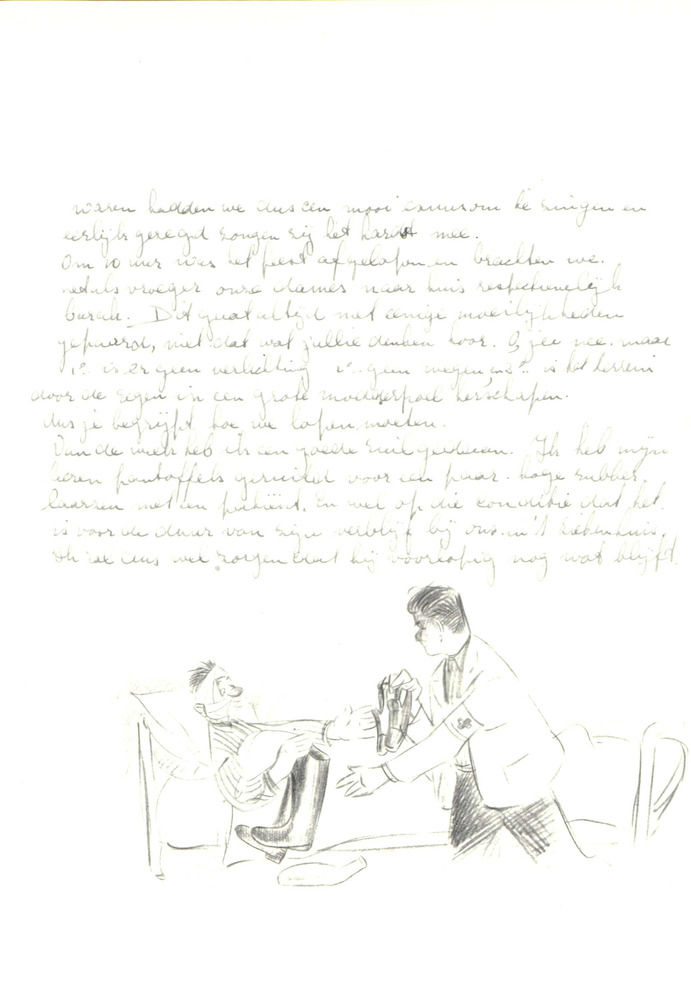 waren hadden we dus een mooi canurom te zingen en
eerlijk gezegd zongen zij het hardst mee.
Om 10 uur was het feest afgelopen en brachten we.
netals vroeger onze dames naar huis respectievelijk
barak. Dit gaat altijd met eenige moeilijkheden
gepaard, niet dat wat jullie denken hoor. O, jee nee. maar
1e is er geen verlichting 2e geen wegen en 3e is het terrein
door de regen in een grote modderpoel herschapen.
dus je begrijpt hoe we lopen moeten.
Van de week heb ik een goede ruil gedaan. Ik heb mijn
leren pantoffels geruild voor een paar hoge rubber
laarzen met een patiënt. En wel op die conditie dat het
is voor de duur van zijn verblijf bij ons in 't ziekenhuis.
Ik zal dus wel zorgen dat hij voorlopig nog wat blijft.